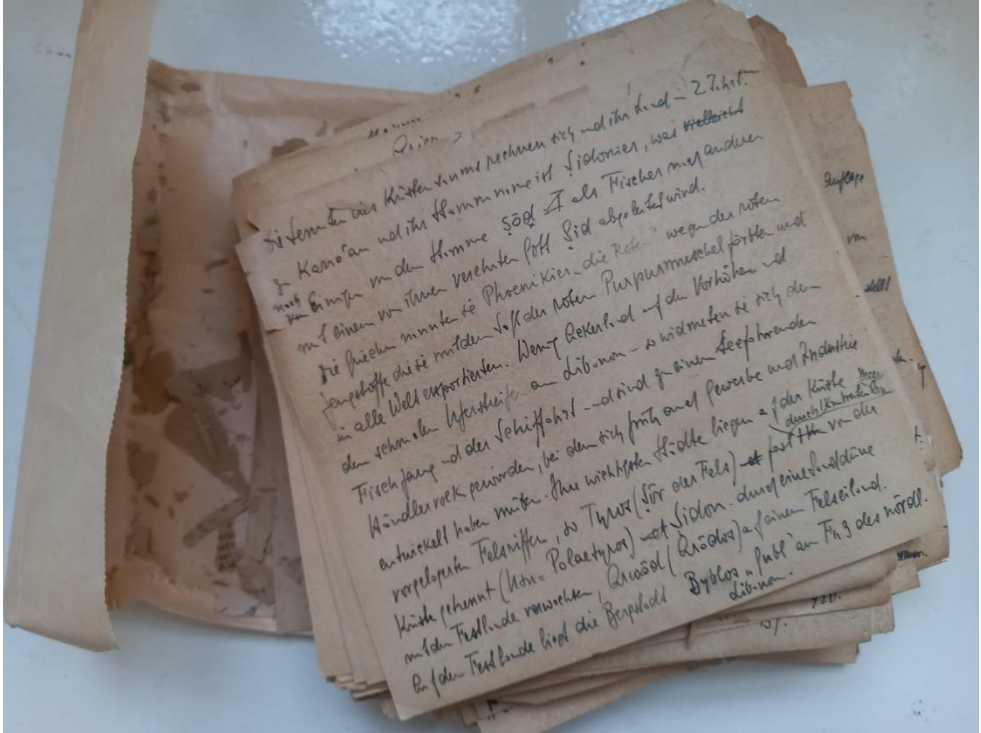 Die Semiten des Küstensaums rechnen sich und ihr Land im 2. Jahrt.
zu Kana'an und ihr Stammname ist Sidonier, was vielleicht
nach Einigen von dem Stamme ṣōd als Fischer nach anderen
mit einem von ihnen verehrten Gott Ṣid abgeleitet wird.
Die Griechen nannten sie Phoenikier „die Roten" wegen der roten
die sie mit dem Saft der roten Purpurmuschel färbten und
in alle Welt exportierten. Wenig Ackerland auf den Vorhöhen und
dem schmalen Uferstreifen am Libanon – so widmeten sie sich dem
Fischfang und der Schiffahrt und sind zu einem seefahrenden
Händlervolk geworden, bei dem sich früh auch Gewerbe und Industrie
entwickelt haben müssen. Ihre wichtigsten Städte liegen auf der Küste
vorgelagerten Felsriffen, so Tyros (Ṣūr der Fels) fast von der
Küste getrennt Palaetyros) Sidon durch eine Sanddüne
mit dem Festlande verwachsen, Arwād (Arādos) auf einem Felseiland.
Auf dem Festlande liegt die Bergstadt Byblos „Gubl" am Fuß des nördl.
Libanon.
Auflage
von